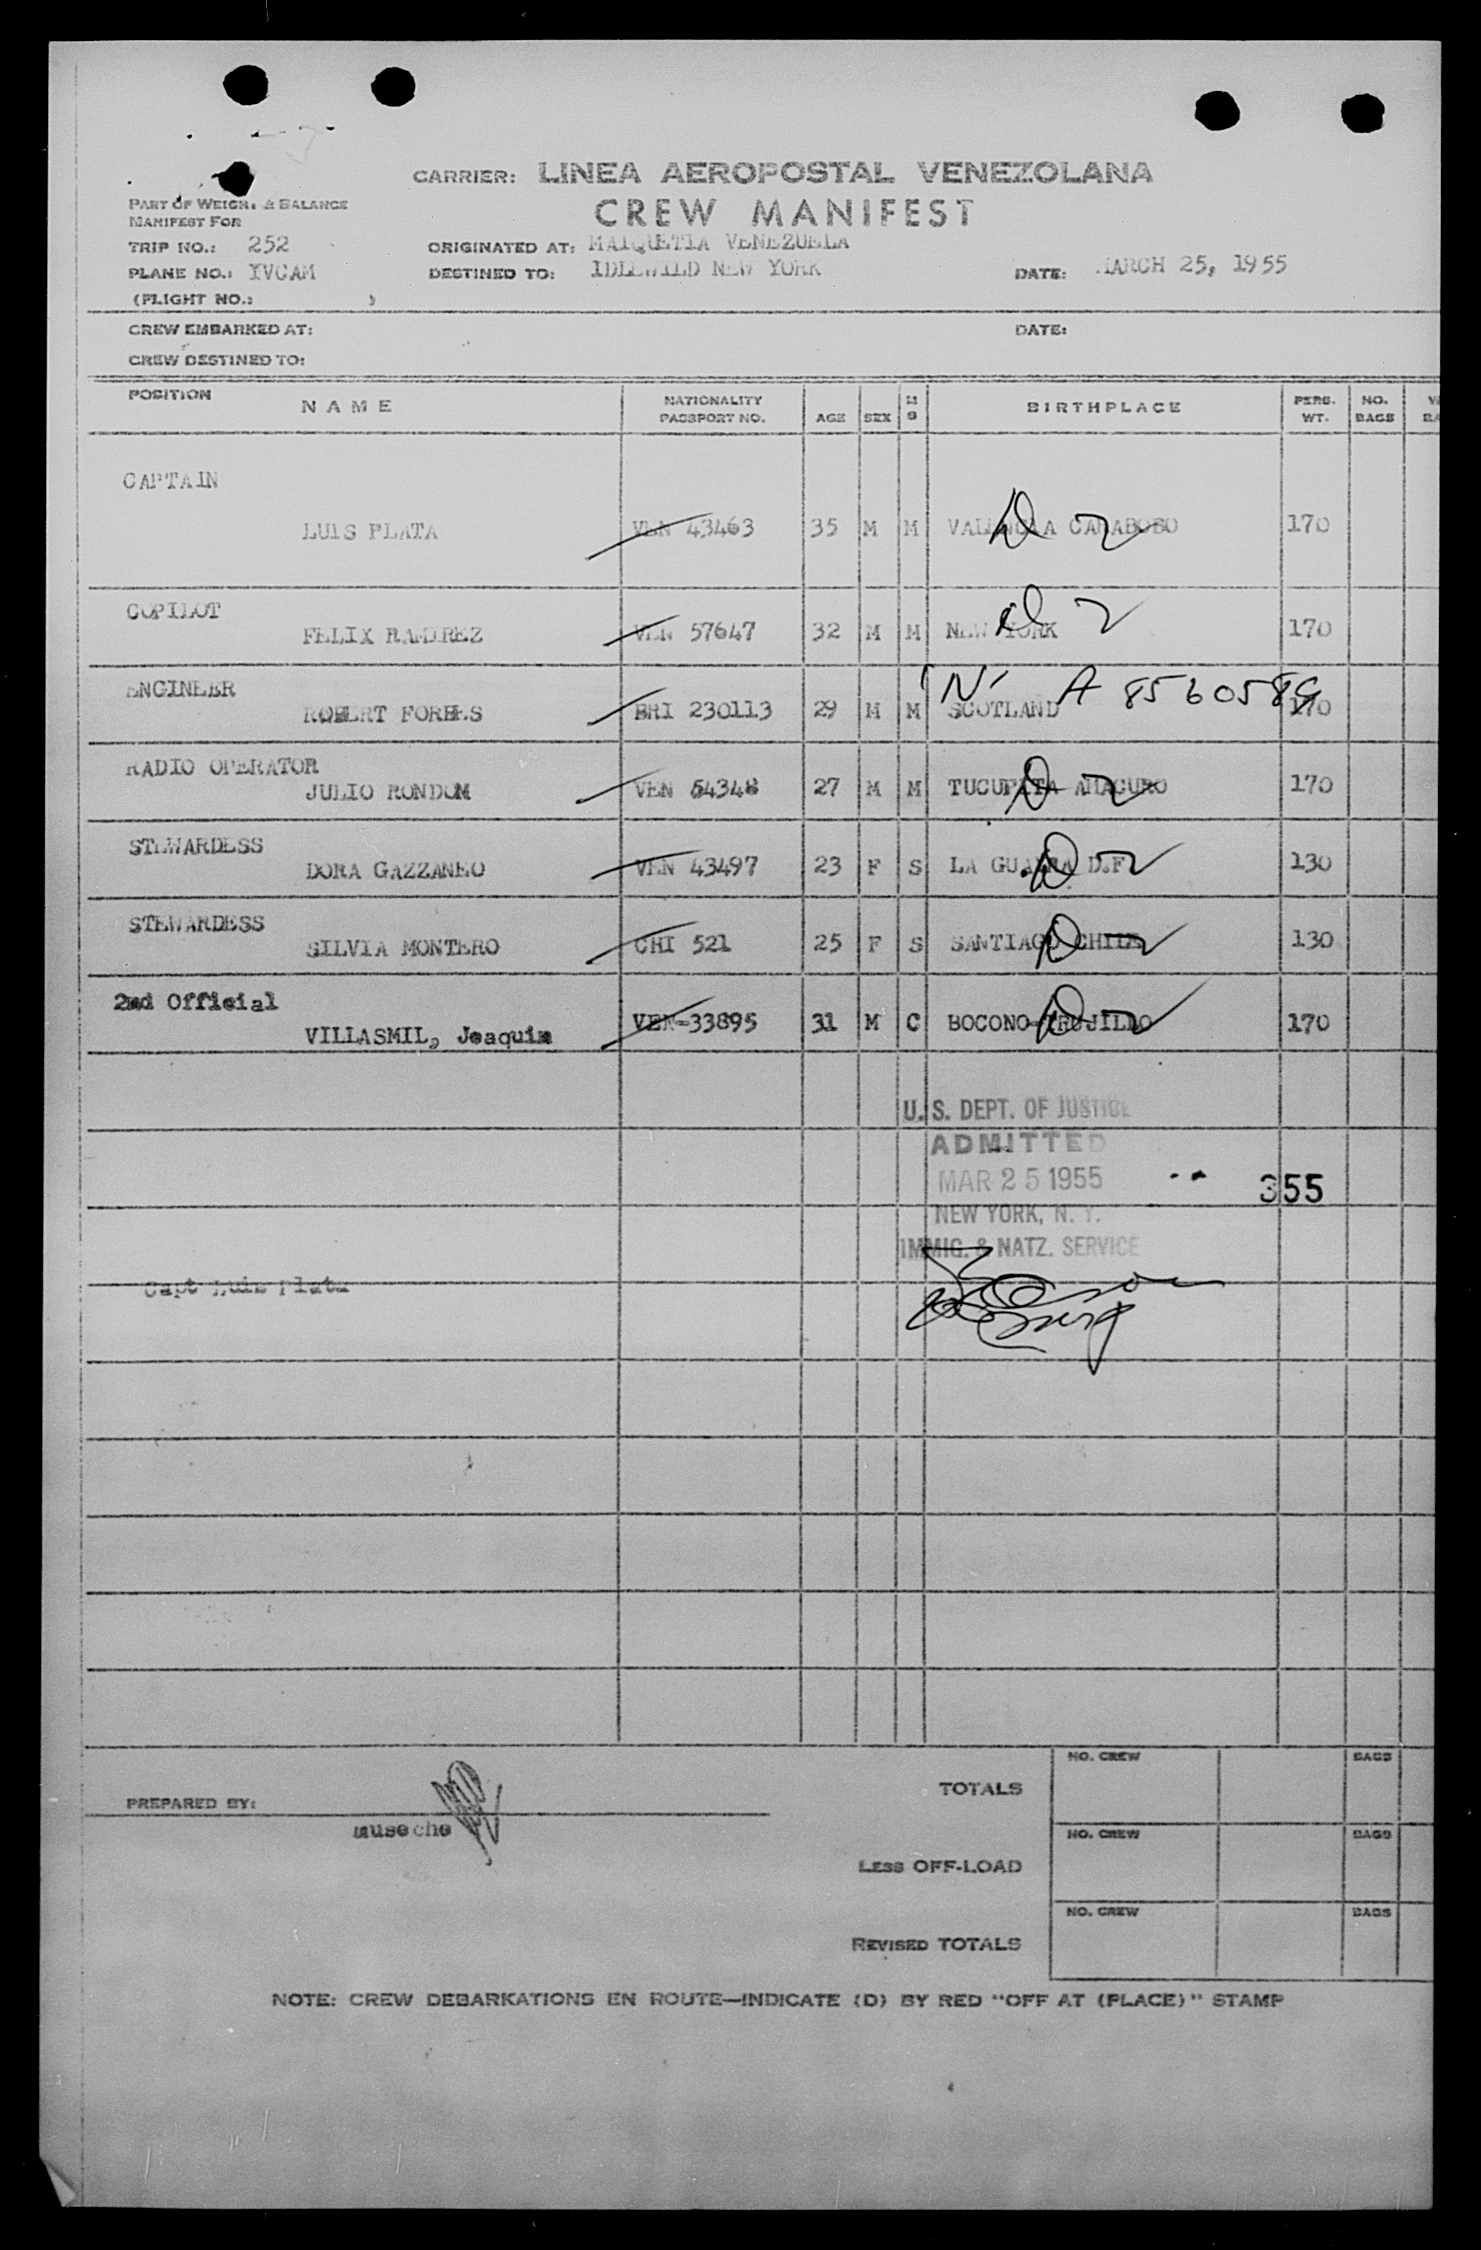 CARRIER: LINEA AEROPOSTAL VENEZOLANA
CREW MANIFEST
PART OF WEIGHT & BALANCE
MANIFEST FOR
TRIP NO.: 252 ORIGINATED AT: MAIQUETIA VENEZUELA
PLANE NO.: YVCAM DESTINED TO: IDLEWILD NEW YORK DATE: MARCH 25, 1955
(FLIGHT NO.: )
CREW EMBARKED AT: DATE:
CREW DESTINED TO:
POSITION NAME NATIONALITY PASSPORT NO. AGE SEX M S BIRTHPLACE PERS. WT. NO. BAGS
CAPTAIN
LUIS PLATA VEN 43463 35 M M VALENCIA CARABOBO 170
D 2
COPILOT
FELIX RAMIREZ VEN 57647 32 M M NEW YORK 170
D 2
ENGINEER N A 8560589
ROBERT FORBES BRI 230113 29 M M SCOTLAND 170
RADIO OPERATOR
JULIO RONDOM VEN 54348 27 M M TUCUPITA AMACURO 170
D 2
STEWARDESS
DORA GAZZANEO VEN 43497 23 F S LA GUAIRA D.F. 130
D 2
STEWARDESS
SILVIA MONTERO CHI 521 25 F S SANTIAGO CHILE 130
D 2
2nd Official
VILLASMIL, Joaquim VEN-33895 31 M C BOCONO-TRUJILLO 170
D 2
U.S. DEPT. OF JUSTICE
ADMITTED
MAR 25 1955 355
NEW YORK, N. Y.
IMMIG. & NATZ. SERVICE
Capt Luis Plata
NO. CREW BAGS
TOTALS
PREPARED BY:
museche
NO. CREW BAGS
LESS OFF-LOAD
NO. CREW BAGS
REVISED TOTALS
NOTE: CREW DEBARKATIONS EN ROUTE—INDICATE (D) BY RED "OFF AT (PLACE)" STAMP